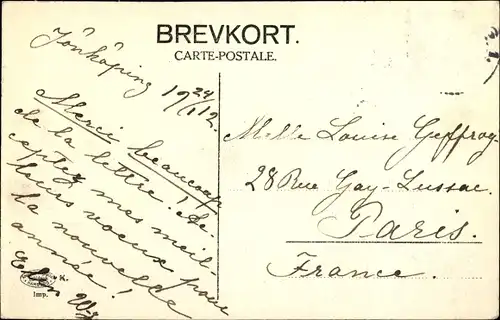 BREVKORT.
CARTE-POSTALE.
Jönköping
19 24/12 12.
Merci beaucoup
de la lettre! Ac
ceptez mes meil-
leurs voeux pour
la nouvelle
année!
Melle Louise Geffroy
28 Rue Gay-Lussac
Paris.
France.
K.
Imp.